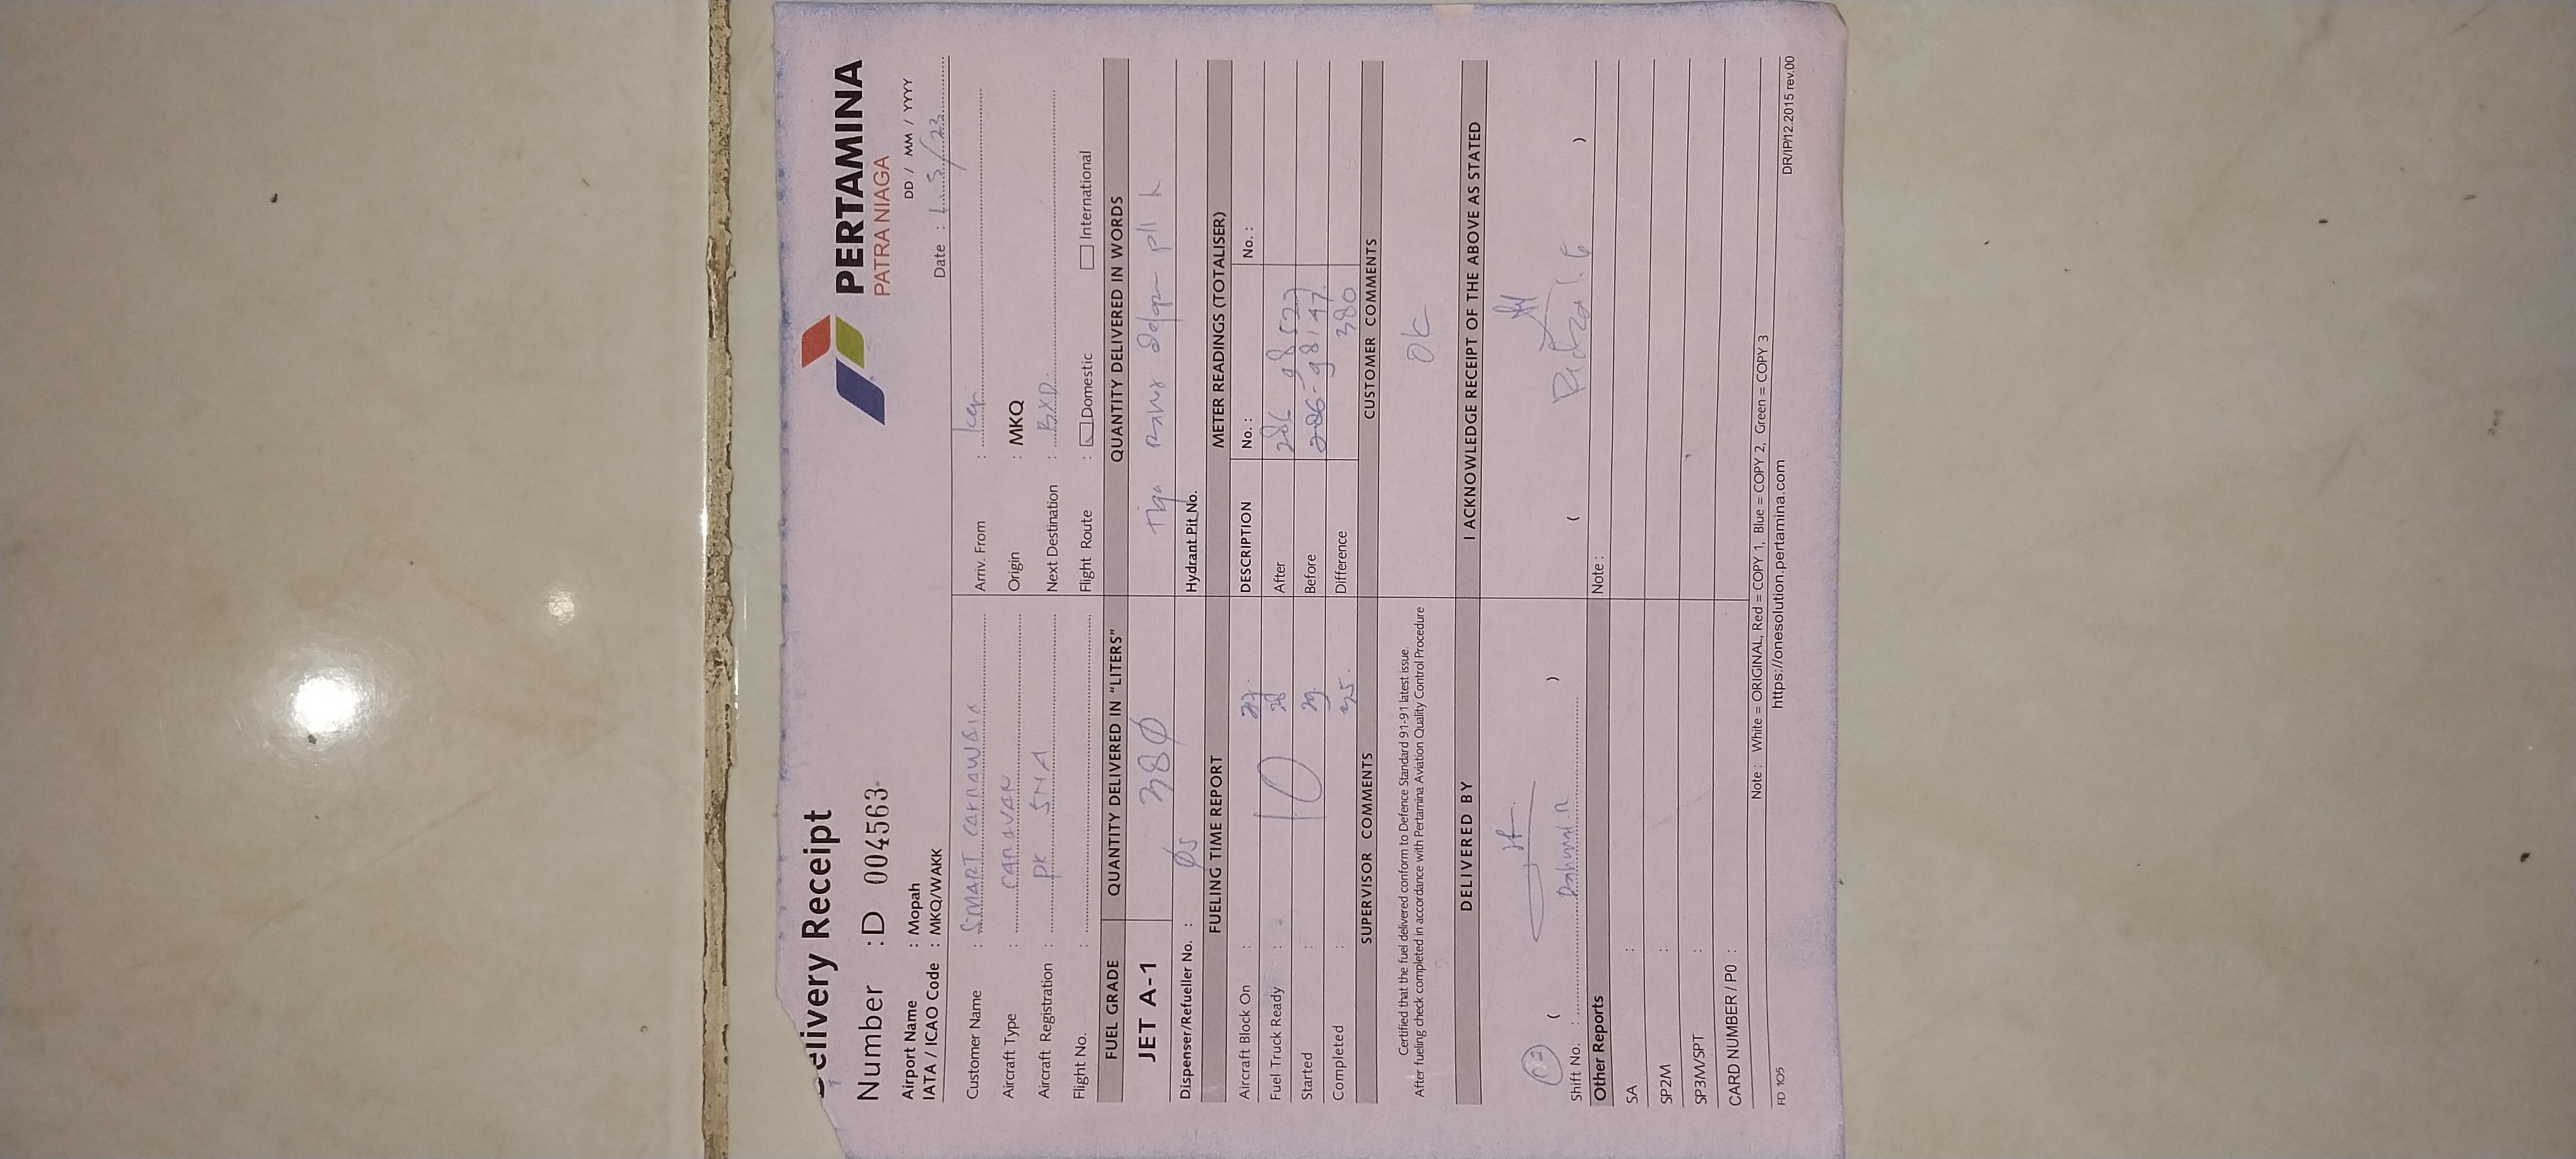 Delivery Receipt
PERTAMINA
PATRA NIAGA
Number : D 004563
DD / MM / YYYY
Airport Name : Mopah
IATA / ICAO Code : MKQ/WAKK
Date : 1 5/23
Customer Name : SMART CAKRAWALA
Arriv. From :
Aircraft Type : CARAVAN
Origin : MKQ
Aircraft Registration : PK SNA
Next Destination : BXD.
Flight No. :
Flight Route : Domestic International
FUEL GRADE QUANTITY DELIVERED IN "LITERS" QUANTITY DELIVERED IN WORDS
JET A-1 380 Tiga
Dispenser/Refueller No. : 05 Hydrant Pit No.
FUELING TIME REPORT METER READINGS (TOTALISER)
Aircraft Block On : 27. DESCRIPTION No. : No. :
Fuel Truck Ready : 10 28 After 286 98527
Started : 29. Before 286-98147
Completed : 35. Difference 380
SUPERVISOR COMMENTS CUSTOMER COMMENTS
Certified that the fuel delivered conform to Defence Standard 91-91 latest issue.
After fueling check completed in accordance with Pertamina Aviation Quality Control Procedure
OK
DELIVERED BY I ACKNOWLEDGE RECEIPT OF THE ABOVE AS STATED
Shift No. : ( ) ( )
Other Reports Note :
SA :
SP2M :
SP3M/SPT :
CARD NUMBER / P0 :
Note : White = ORIGINAL, Red = COPY 1, Blue = COPY 2, Green = COPY 3
FD 105 https://onesolution.pertamina.com DR/IP/12.2015 rev.00